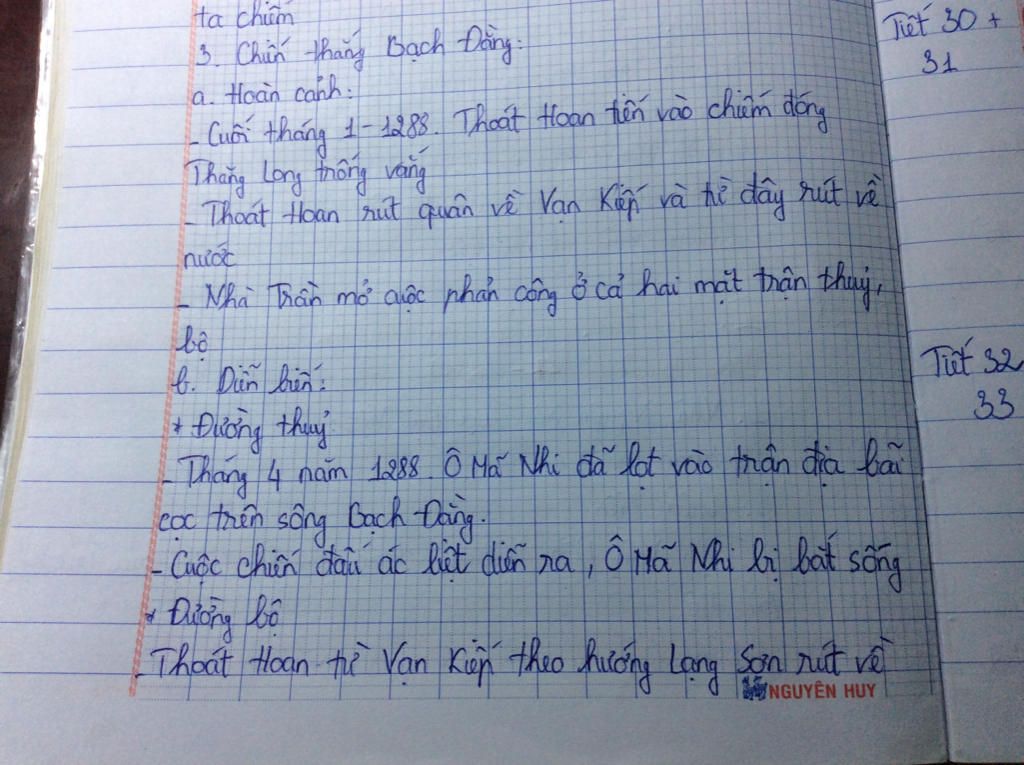 ta chiếm
3. Chiến thắng Bạch Đằng:
a. Hoàn cảnh:
- Cuối tháng 1-1288. Thoát Hoan tiến vào chiếm đóng
Thăng Long trống vắng
- Thoát Hoan rút quân về Vạn Kiếp và từ đây rút về
nước
- Nhà Trần mở cuộc phản công ở cả hai mặt trận thuỷ,
bộ
b. Diễn biến:
* Đường thuỷ
- Tháng 4 năm 1288. Ô Mã Nhi đã lọt vào trận địa bãi
cọc trên sông Bạch Đằng.
- Cuộc chiến đấu ác liệt diễn ra, Ô Mã Nhi bị bắt sống
* Đường bộ
- Thoát Hoan từ Vạn Kiếp theo hướng Lạng Sơn rút về
NGUYÊN HUY
Tiết 30 +
31
Tiết 32
33